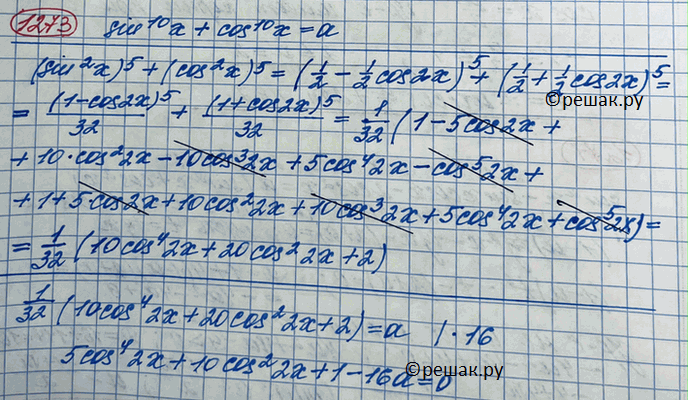 1273 sin¹⁰x + cos¹⁰x = a
(sin²x)⁵ + (cos²x)⁵ = (1/2 - 1/2 cos2x)⁵ + (1/2 + 1/2 cos2x)⁵ =
©решак.ру
= (1-cos2x)⁵/32 + (1+cos2x)⁵/32 = 1/32 (1 - 5cos2x +
+ 10·cos²2x - 10cos³2x + 5cos⁴2x - cos⁵2x +
+ 1 + 5cos2x + 10cos²2x + 10cos³2x + 5cos⁴2x + cos⁵2x) =
= 1/32 (10cos⁴2x + 20cos²2x + 2)
1/32 (10cos⁴2x + 20cos²2x + 2) = a | · 16
5cos⁴2x + 10cos²2x + 1 - 16a = 0
©решак.ру